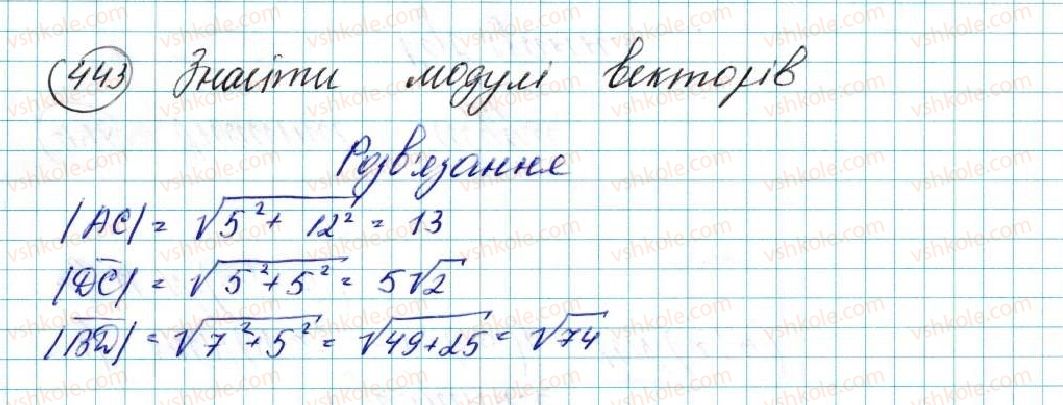 443 Знайти модулі векторів
Розв'язання
|AC| = √(5² + 12²) = 13
|DC| = √(5² + 5²) = 5√2
|BD| = √(7² + 5²) = √(49 + 25) = √74
vshkole.com